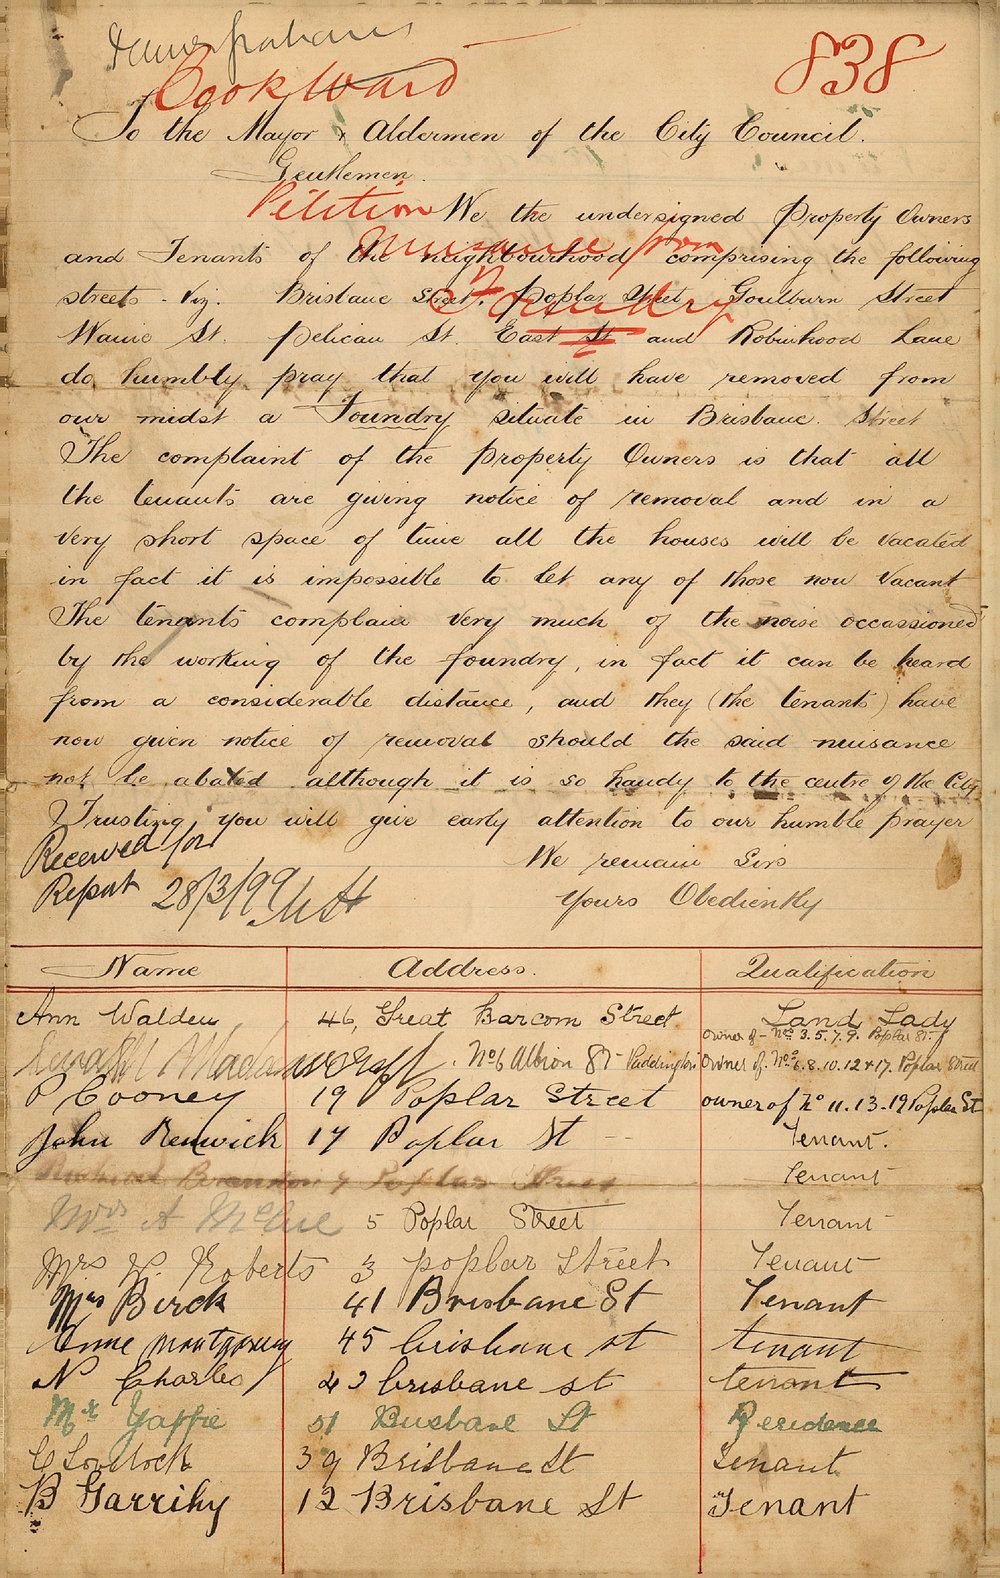 James Graham
Cook Ward
838
To the Mayor & Aldermen of the City Council.
Gentlemen.
Petition
We the undersigned Property Owners
nuisance from
and Tenants of the neighbourhood comprising the following
Foundry
streets - Viz. Brisbane Street, Poplar Street Goulburn Street
St. Pelican St. East St and Robinhood Lane
do humbly pray that you will have removed from
our midst a Foundry situate in Brisbane. Street
The complaint of the Property Owners is that all
the tenants are giving notice of removal and in a
very short space of time all the houses will be vacated
in fact it is impossible to let any of those now vacant
The tenants complain very much of the noise occassioned
by the working of the foundry, in fact it can be heard
from a considerable distance, and they (the tenants) have
now given notice of removal should the said nuisance
not be abated although it is so handy to the centre of the City
Trusting you will give early attention to our humble prayer
We remain Sirs
Yours Obediently
Received for
Report 28/3/99
Name Address. Qualification
Ann Walden, 46, Great Barcom Street Land Lady
owner of - Nos 3. 5. 7. 9. Poplar St.
No 6 Albion St Paddington owner of. Nos 6. 8. 10. 12 & 17. Poplar Street
P Cooney 19 Poplar Street owner of No 11. 13. 19 Poplar St
John Renwick 17 Poplar St - - Tenant.
Poplar Street Tenant
Mrs A McCue 5 Poplar Street Tenant
Mrs Roberts 3 poplar Street Tenant
Mrs Birck 41 Brisbane St Tenant
Anne Montgomery 45 brisbane st tenant
N Charles 43 brisbane st tenant
Mr Yaffie 51 Brisbane St Residence
C Lovelock 39 Brisbane St Tenant
B Garrihy 12 Brisbane St Tenant